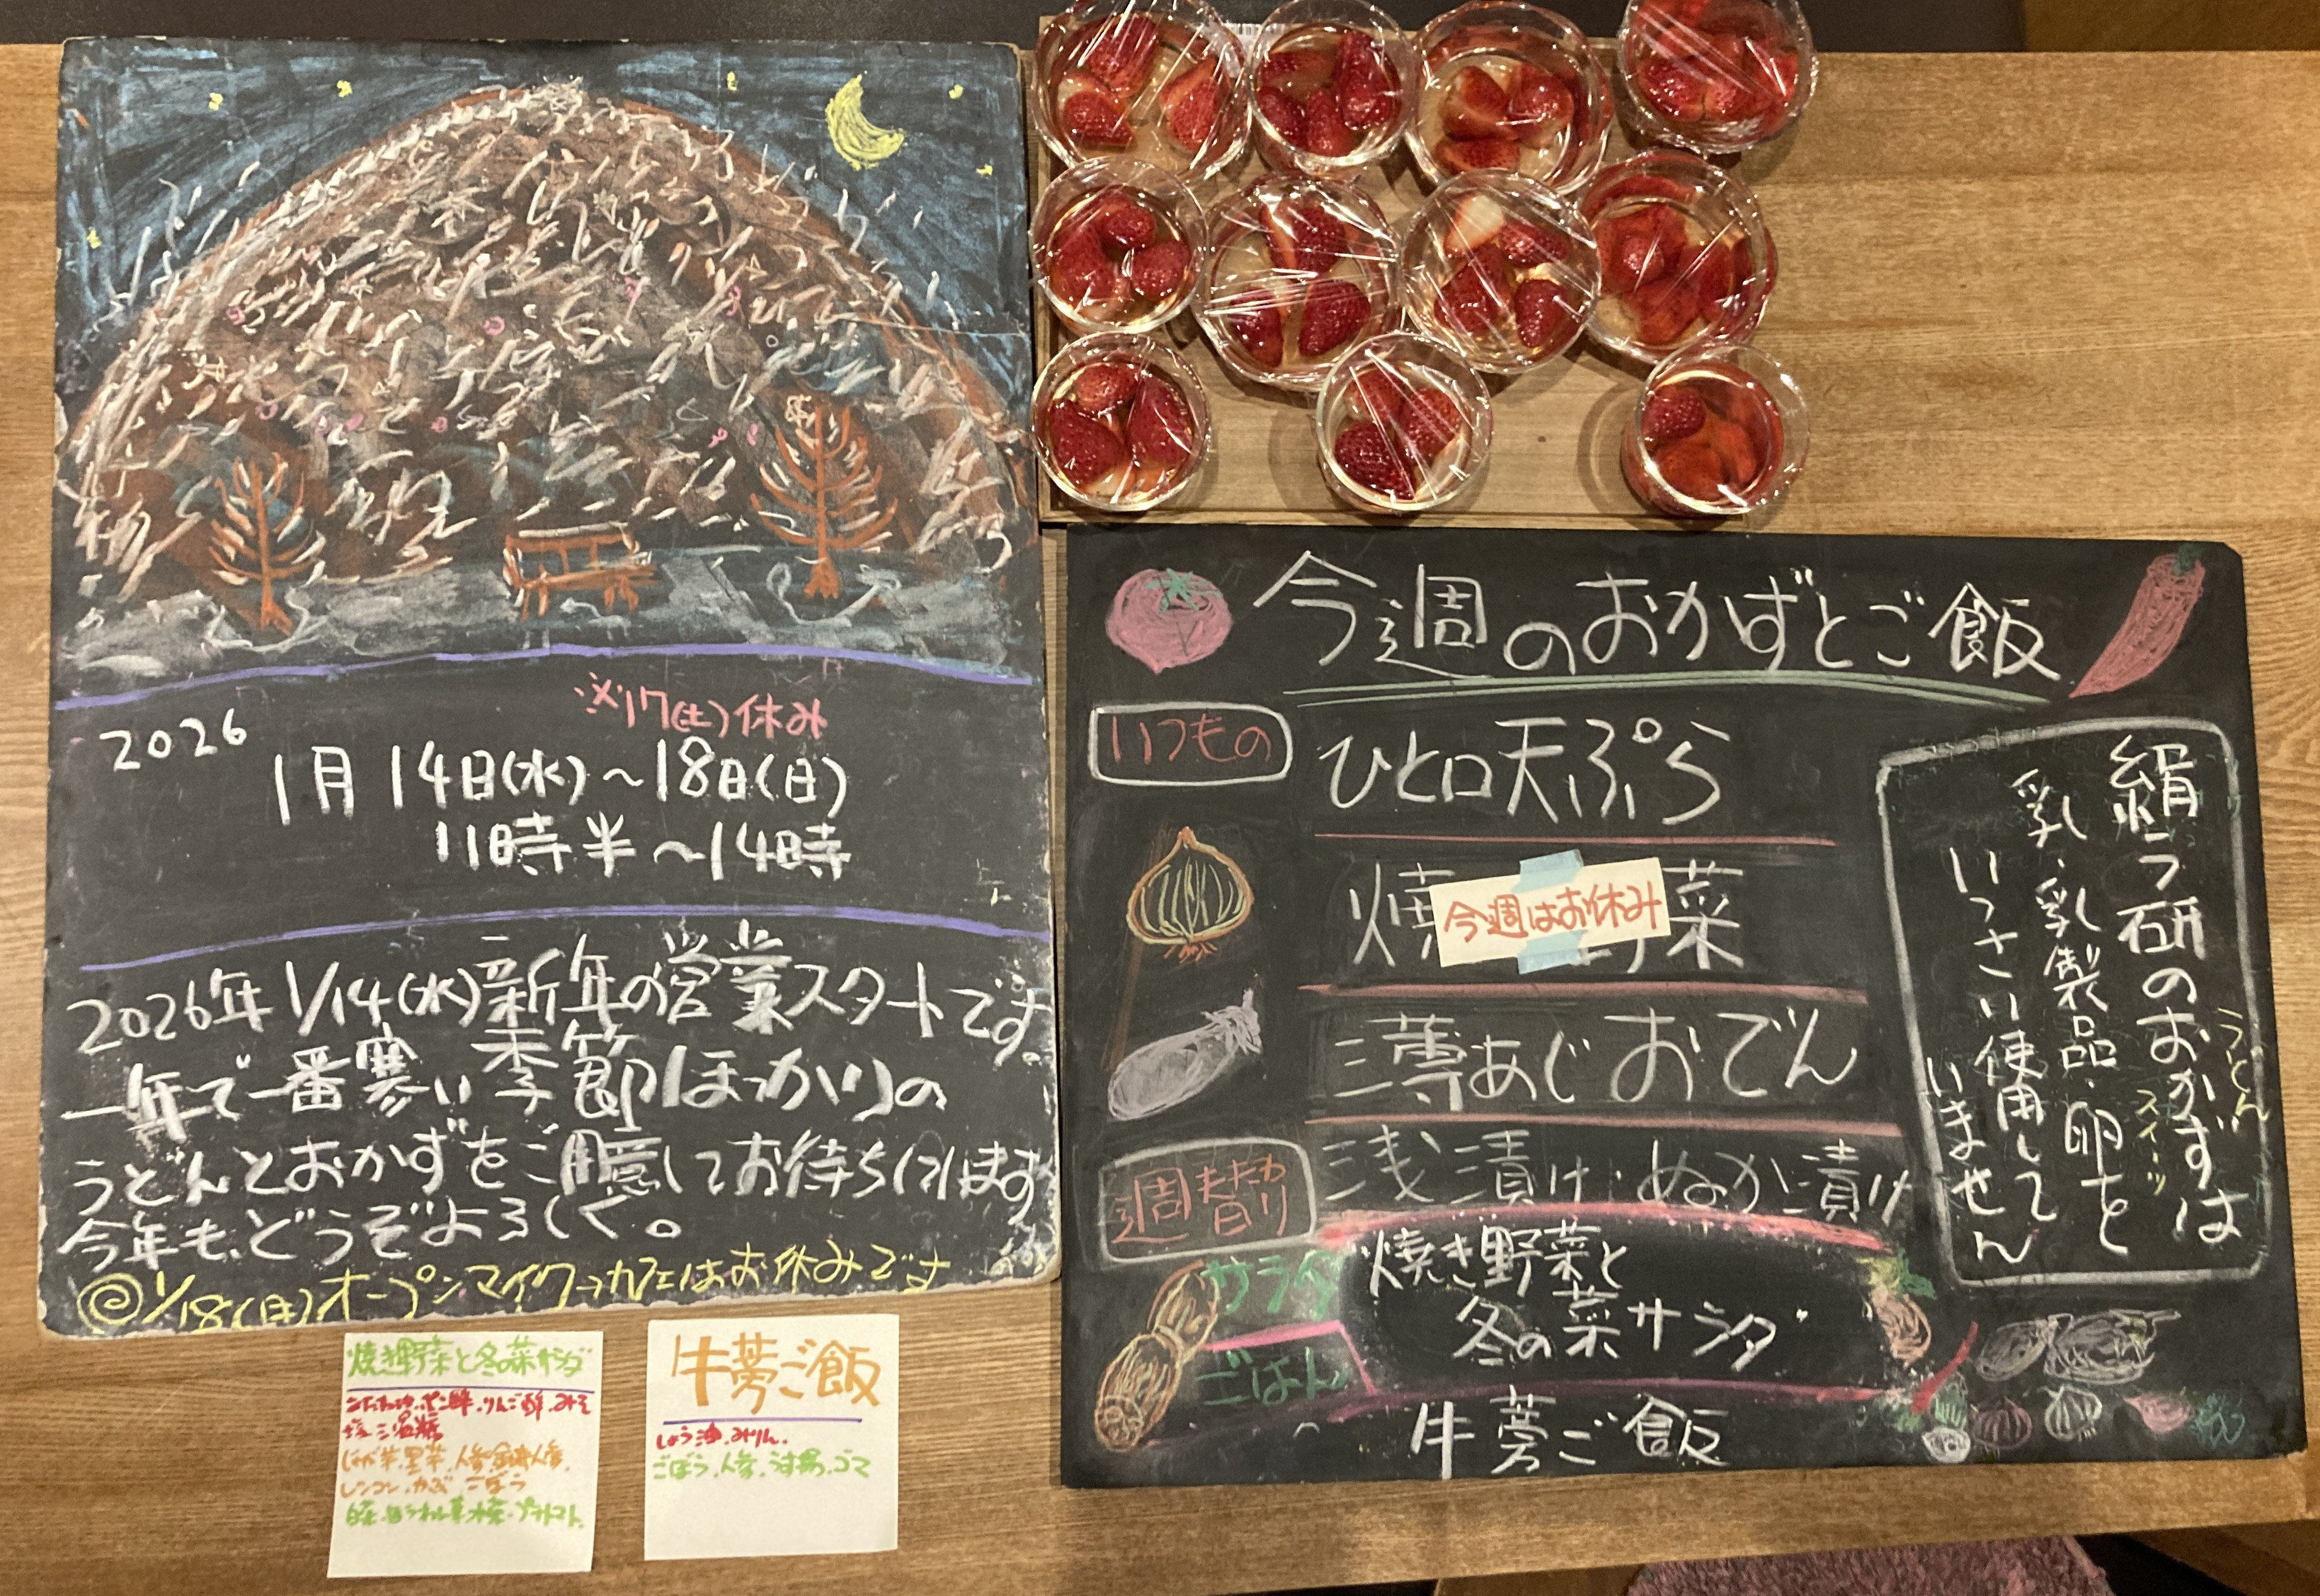 2026
※17(土)休み
1月14日(水)～18日(日)
11時半～14時
2026年1/14(水)新年の営業スタートです。
一年で一番寒い季節ほっかりの
うどんとおかずをご用意してお待ちしてます
今年も、どうぞよろしく。
◎1/18(日)オープンマイクカフェはお休みです
焼き野菜と冬の菜サラダ
りんご酢.みそ
じゃが芋.里芋.人参.金時人参.
レンコン.かぶ.ごぼう
牛蒡ご飯
しょう油.みりん.
ごぼう.人参.油揚.ゴマ
今週のおかずとご飯
いつもの
ひと口天ぷら
焼 野菜
今週はお休み
あじおでん
週替わり
浅漬け・ぬか漬け
サラダ
焼き野菜と
冬の菜サラダ
ごはん
牛蒡ご飯
絹う研のおかずは
うどん
スイーツ
乳・乳製品・卵を
いっさい使用して
いません